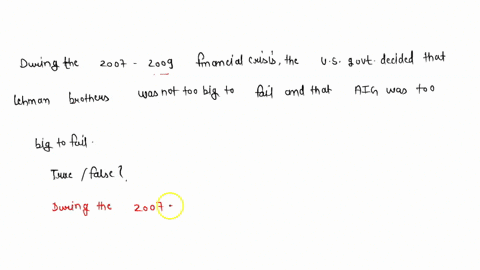 During the 2007 - 2009 financial crisis, the U.S. govt. decided that
lehman brothers was not too big to fail and that AIG was too
big to fail.
True / false?
During the 2007 -